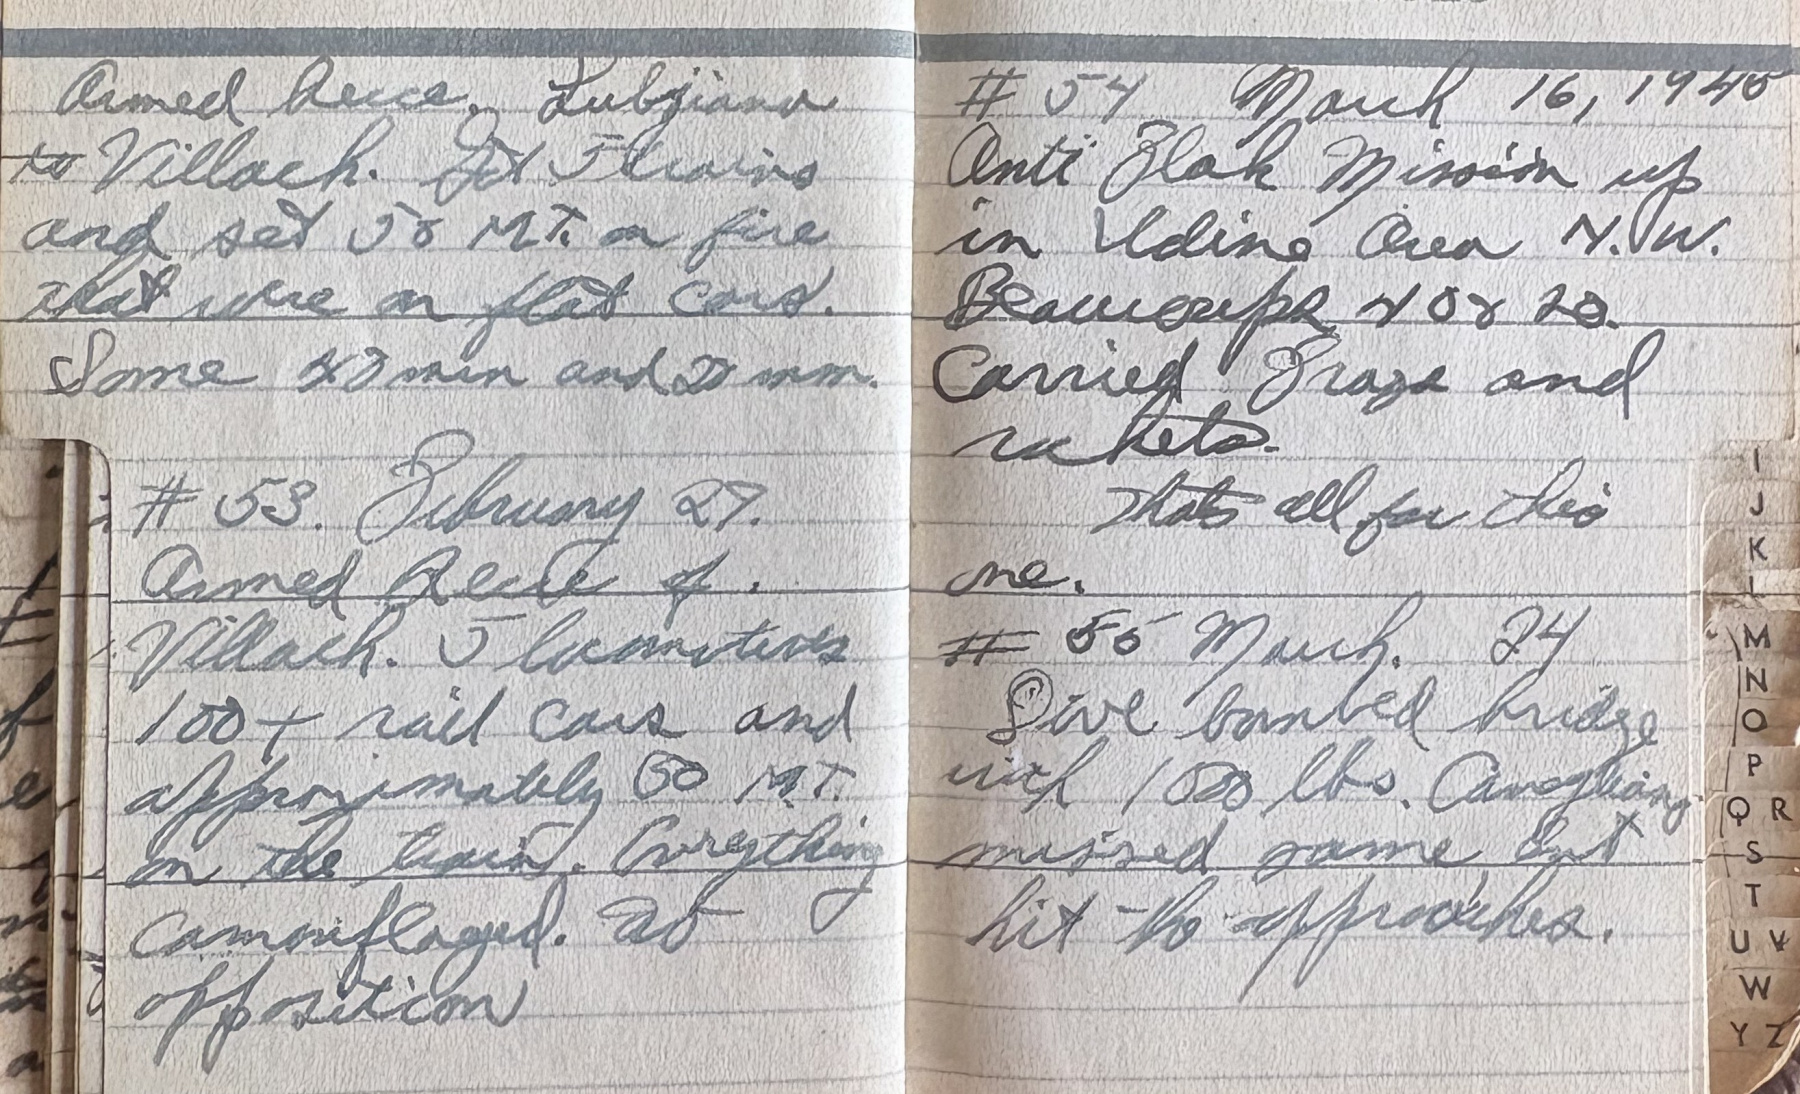 Armed Recce. Lubjiana
to Villach. Got 5 trains
and set 50 M.T. on fire
that were on flat cars.
Some 40 mm and 20 mm.
# 53. February 27.
Armed Recce of.
Villach. 5 locomotives
100+ rail cars and
approximately 50 M.T.
on the train. Everything
camouflaged. no
opposition
# 54 March 16, 1945
Anti Flak Mission up
in Udine Area N.W.
Beaucoups 40 or 20.
Carried Frags and
rockets.
Thats all for this
one.
# 55 March. 24
Dive bombed bridge
with 1000 lbs.
missed same but
hit the approaches.
I
J
K
L
M
N
O
P
Q R
S
T
U V
W
Y Z